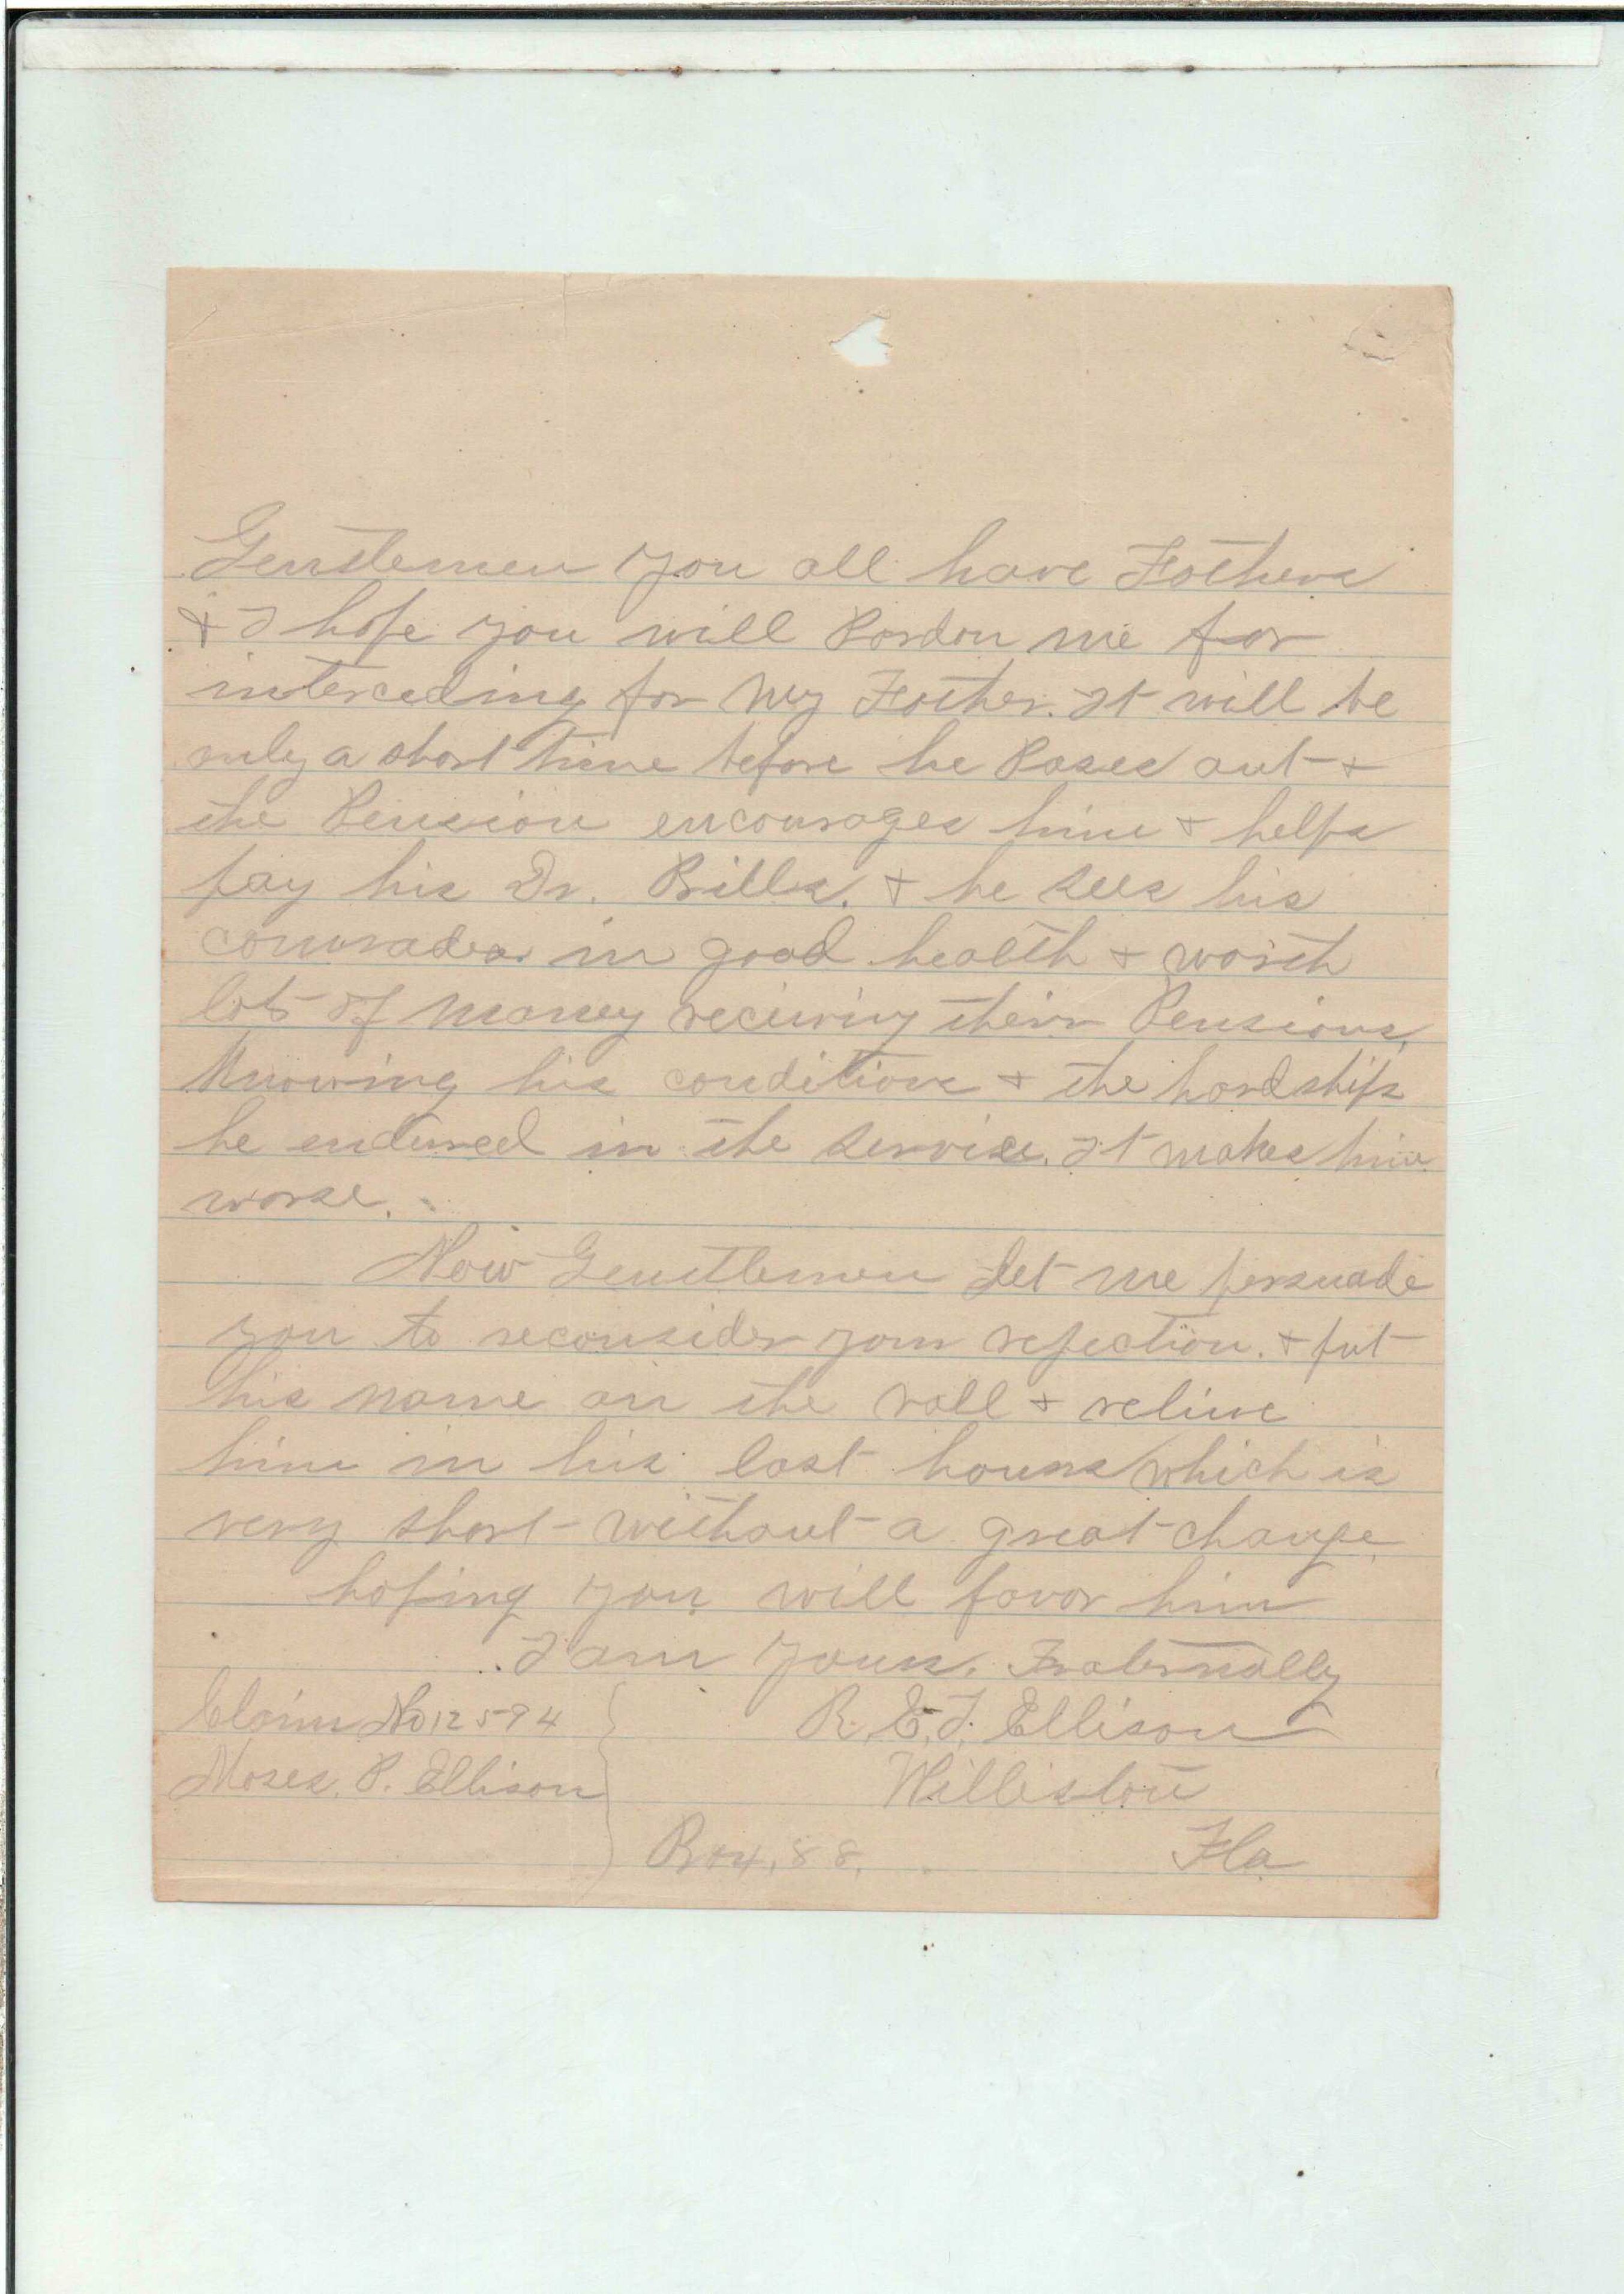 Gentlemen you all have Fathers
& I hope you will Pardon me for
interceding for My Father. It will be
only a short time before he Pases out &
the Pension encourages him & helps
pay his Dr. Bills. & he sees his
comrades in good health & worth
lots of money reciving their Pensions.
Knowing his conditions & the hardships
he endured in the service. It makes him
worse.
Now Gentlemen Let me persuade
you to reconsider your rejection. & put
his name on the roll & relive
him in his last hours which is
very short without a great change
hoping you will favor him
I am yours. Fraternally
Claim No 12594 R. E. J. Ellison
Moses. P. Ellison Williston
Box. 88. Fla